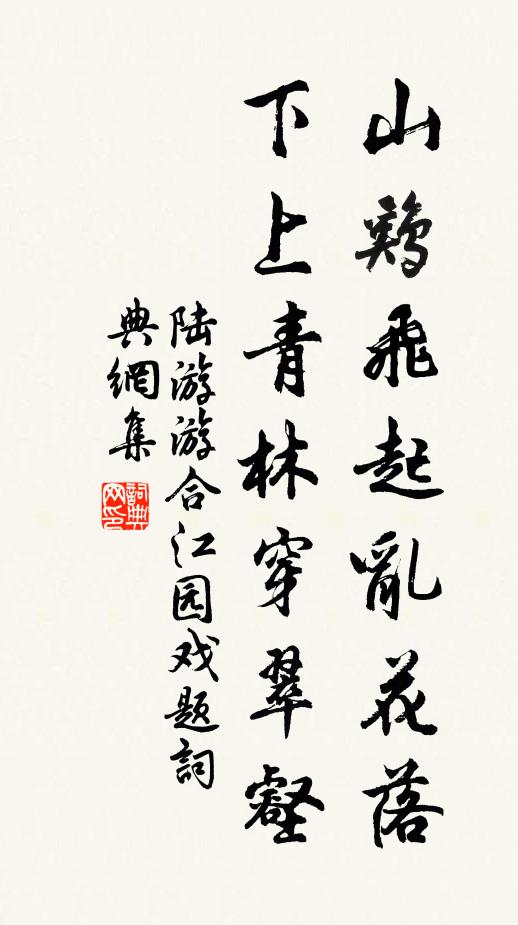 山鷄飛起亂花落
下上青林穿翠壑
陆游游合江园戏题詞
典網集
詞典
网印